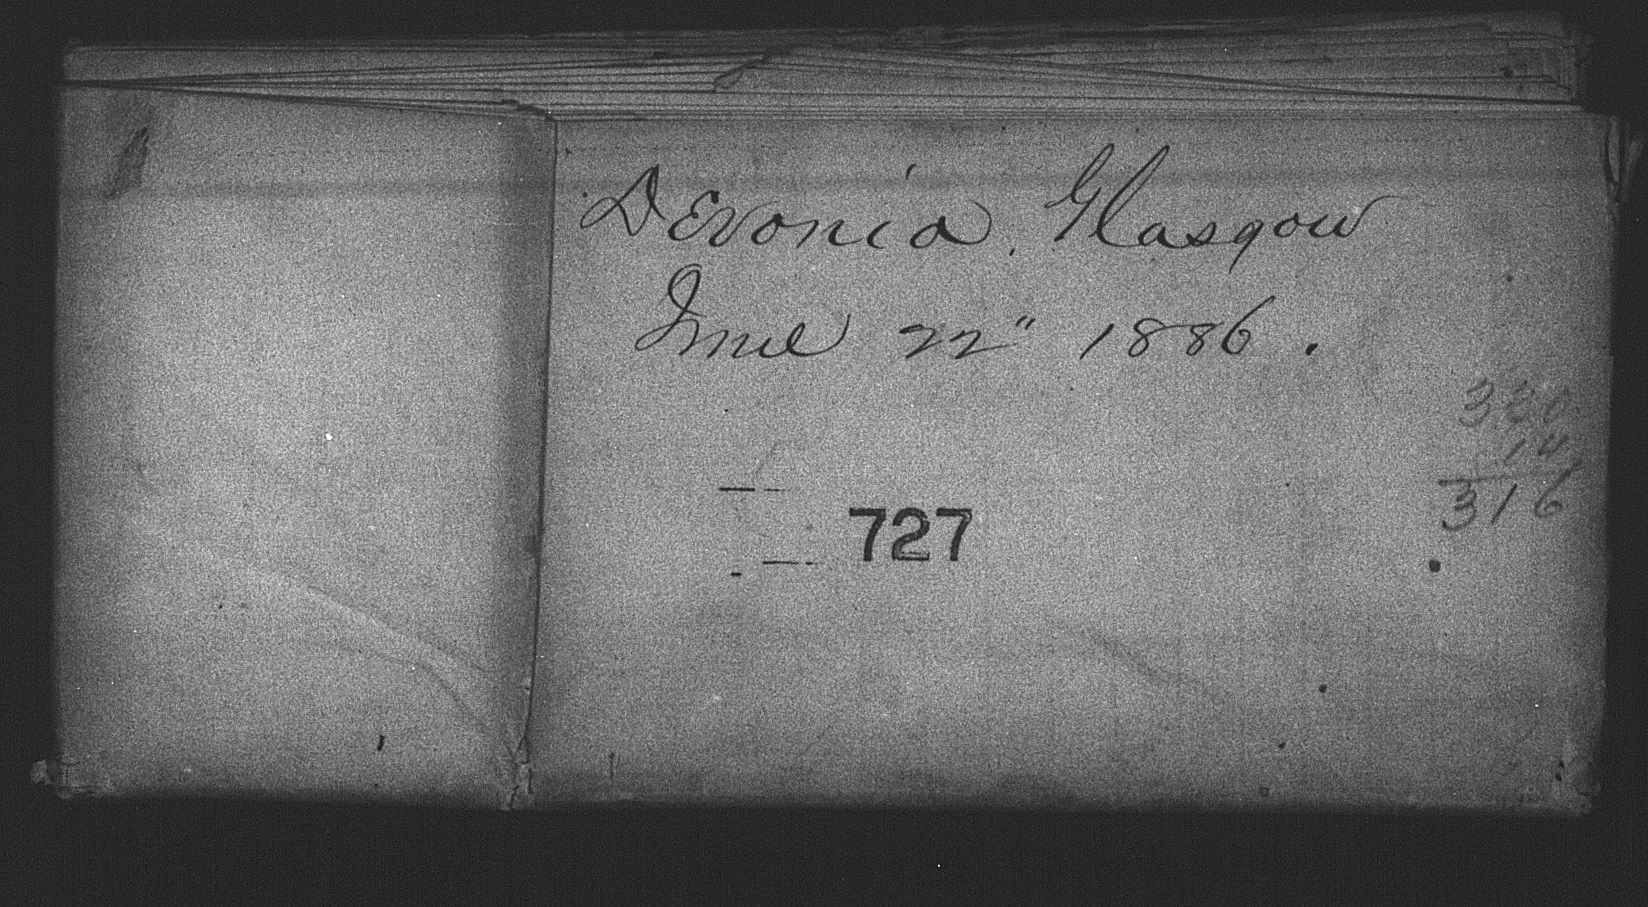 Devonia. Glasgow
June 22" 1886.
727
330
14
316